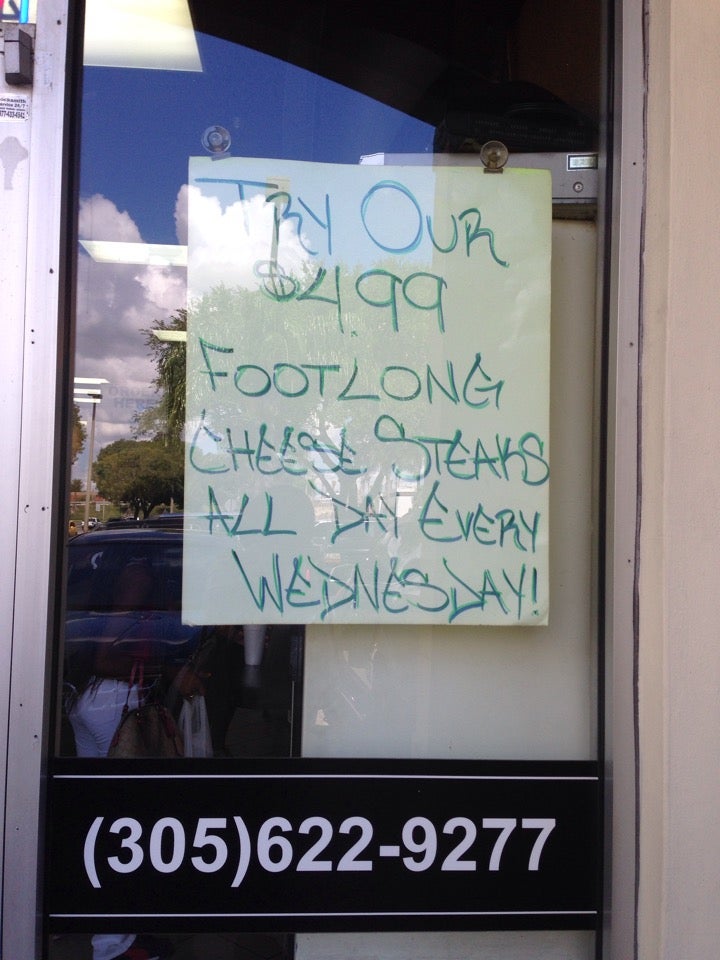 TRY OUR
$4.99
FOOTLONG
CHEESE STEAKS
ALL DAY EVERY
WEDNESDAY!
(305)622-9277